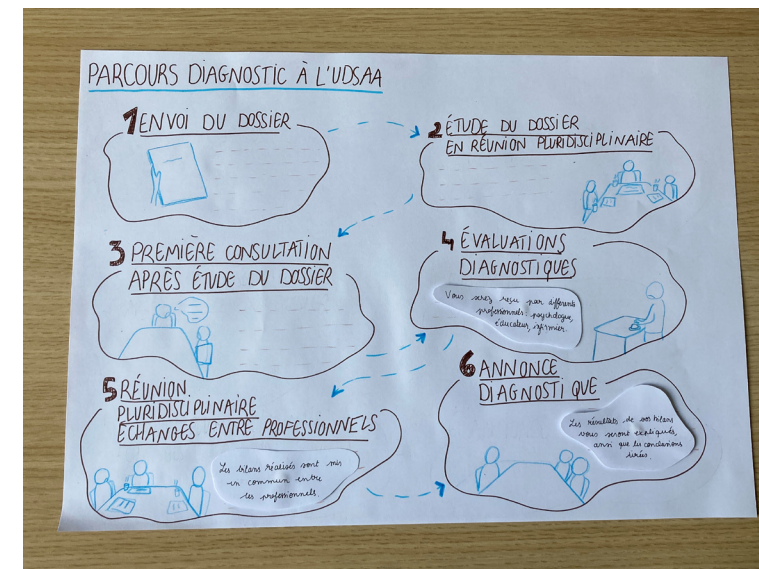 PARCOURS DIAGNOSTIC À L'UDSAA
1 ENVOI DU DOSSIER
2 ÉTUDE DU DOSSIER
EN RÉUNION PLURIDISCIPLINAIRE
3 PREMIÈRE CONSULTATION
APRÈS ÉTUDE DU DOSSIER
4 ÉVALUATIONS
DIAGNOSTIQUES
Vous serez reçu par différents
professionnels: psychologue,
éducateur, infirmier.
5 RÉUNION
PLURIDISCIPLINAIRE
ÉCHANGES ENTRE PROFESSIONNELS
Les bilans réalisés sont mis
en commun entre
les professionnels.
6 ANNONCE
DIAGNOSTIQUE
Les résultats de vos bilans
vous seront expliqués,
ainsi que les conclusions
tirées.